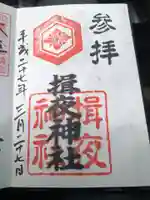 参拝
揖夜神社
平成二十七年三月二十七日
揖夜
神社